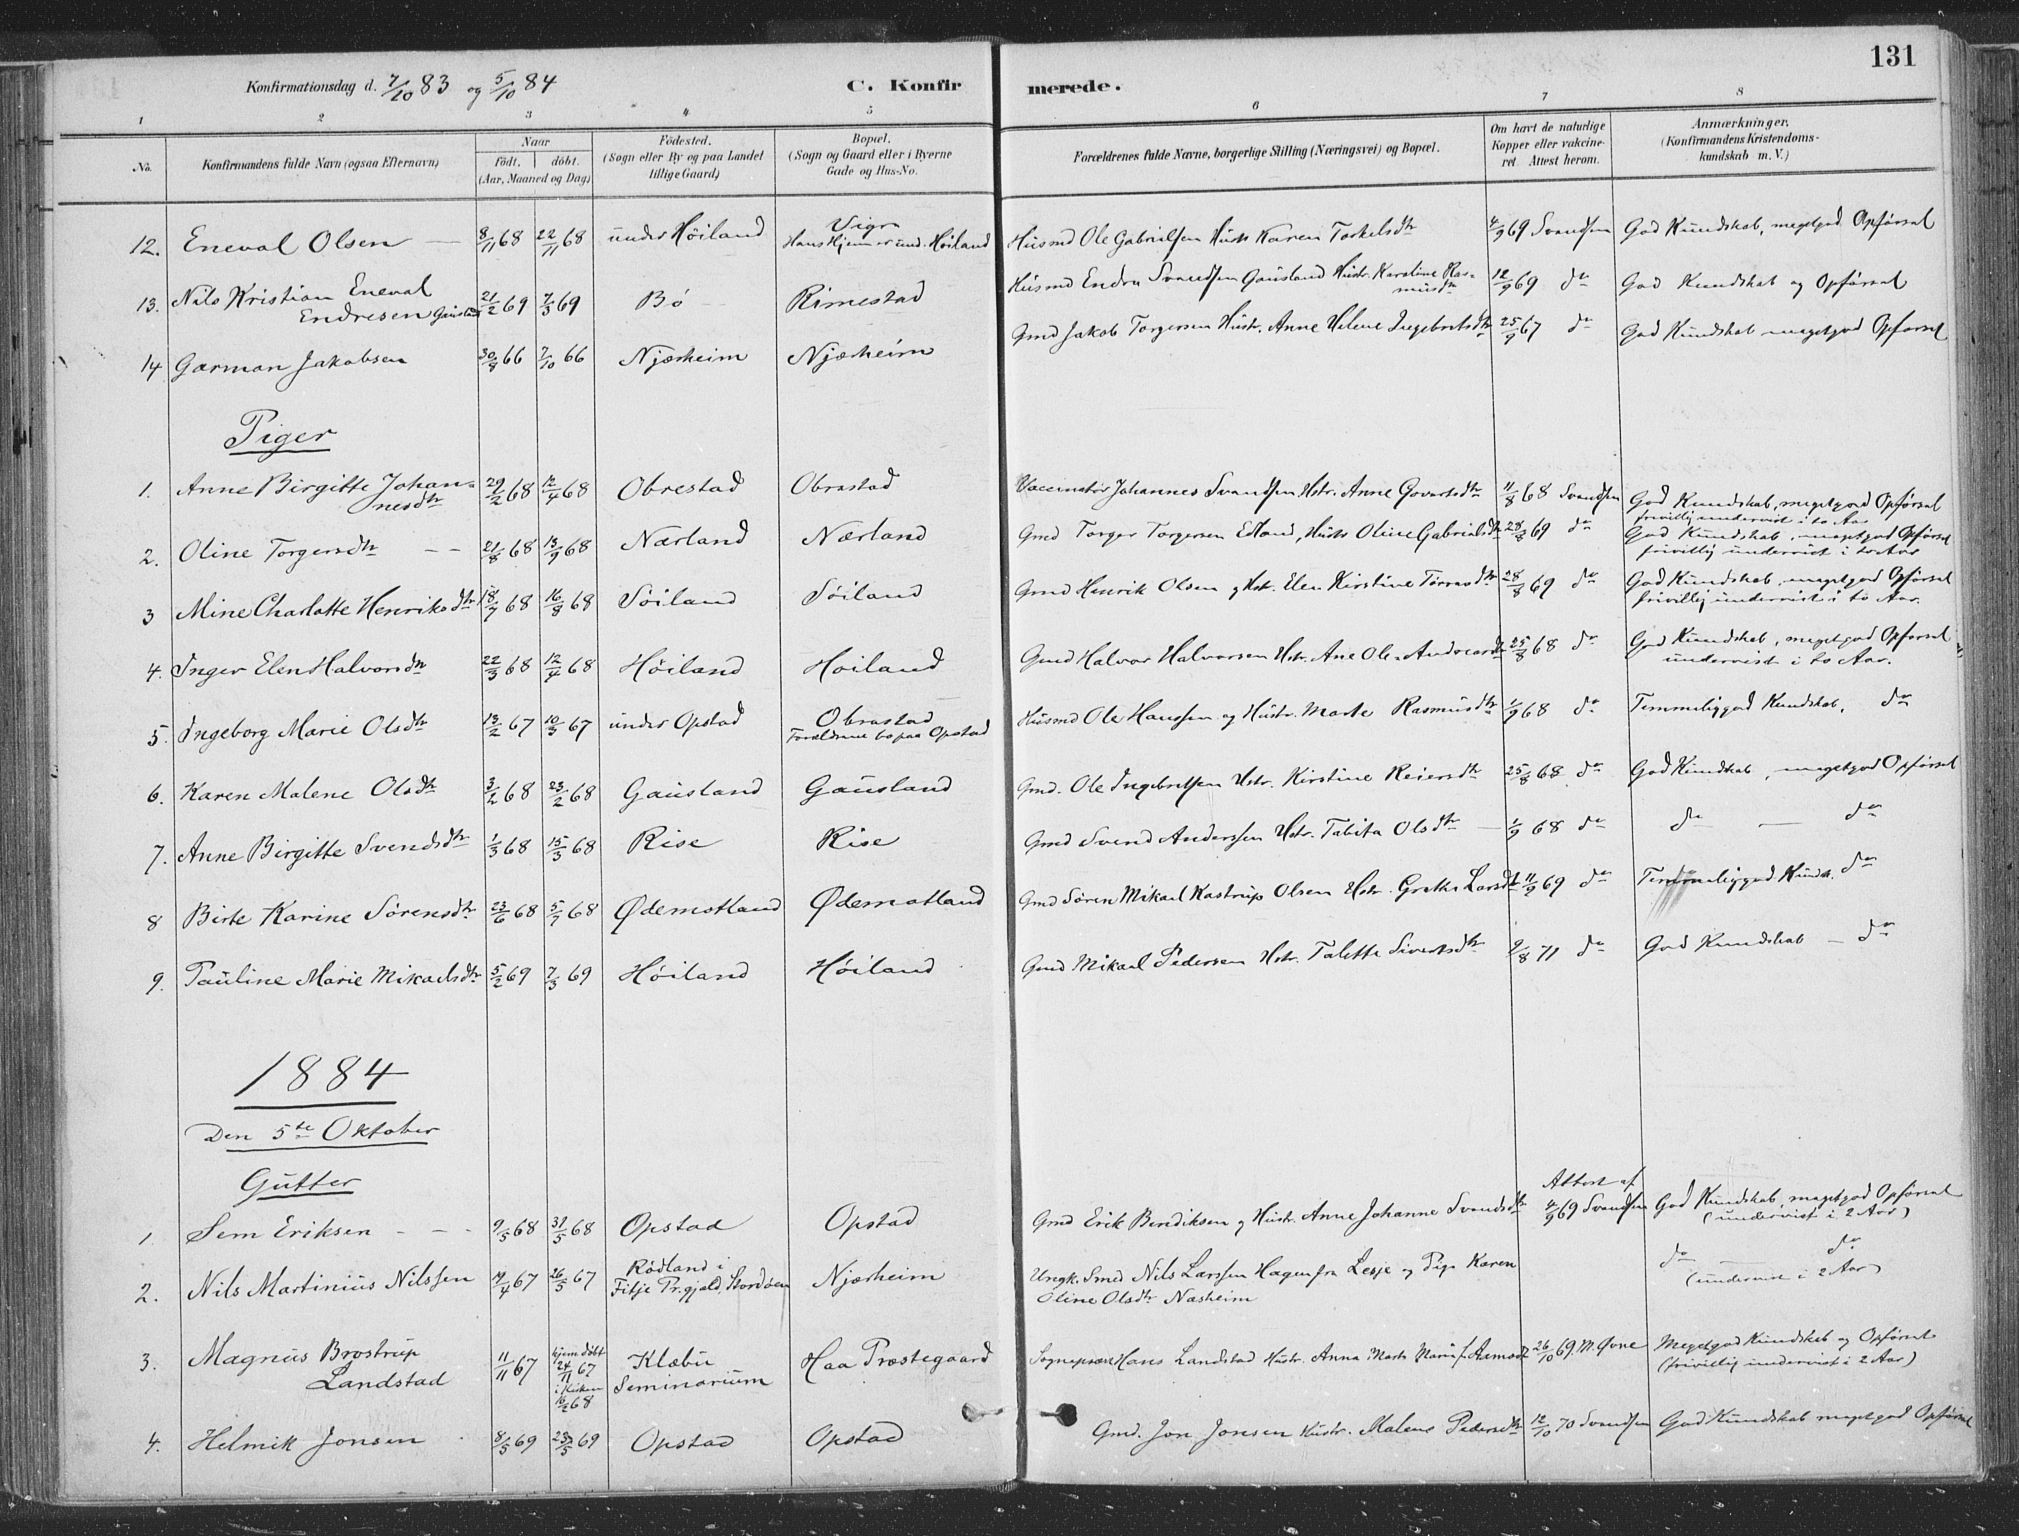 131
Konfirmationsdag d. 7/10 83 og 5/10 84
C. Konfirmerede.
1 2 3 4 5 6 7 8
No.
Konfirmandens fulde Navn (ogsaa Efternavn)
Naar
födt. döbt.
(Aar, Maaned og Dag)
Födested.
(Sogn eller By og paa Landet
tillige Gaard)
Bopæl.
(Sogn og Gaard eller i Byerne
Gade og Hus-No.
Forældrenes fulde Navne, borgerlige Stilling (Næringsvei) og Bopæl.
Om havt de naturlige
Kopper eller vakcine-
ret. Attest herom.
Anmærkninger.
(Konfirmandens Kristendoms-
kundskab m. V.)
12. Eneval Olsen 8/11 68 22/11 68 under Höiland Vigr Hans Hjem er und. Höiland Husmd Ole Gabrielsen Hustr Karen Torkelsdtr 4/9 69 Svendsen God Kundskab, megetgod Opförsel
13. Nils Kristian Eneval
Endresen Gausland 21/2 69 7/3 69 Bö Rimestad Husmd Endre Svendsen Gausland Hustr. Karoline Ras-
musdtr 12/9 69 do God Kundskab og Opförsel
14 Garman Jakobsen 30/8 66 7/10 66 Njærheim Njærheim Gmd Jakob Torgersen Hustr. Anne Helene Ingebretsdtr 25/9 67 do God Kundskab megetgod Opförsel
Piger
1. Anne Birgitte Johan-
nesdtr 29/2 68 12/4 68 Obrestad Obrestad Vaccinatör Johannes Svendsen Hstr. Anne Govertsdtr 11/8 68 Svendsen God Kundskab, megetgod Opförsel
frivillig undervist i to Aar
2. Oline Torgersdtr 21/8 68 13/9 68 Nærland Nærland Gmd Torger Torgersen Eland, Hustr Oline Gabrielsdtr 28/8 69 do God Kundskab, megetgod Opförsel
frivillig undervist i to Aar
3 Mine Charlotte Henriksdtr 18/7 68 16/8 68 Söiland Söiland Gmd Henrik Olsen og Hstr. Elen Kirstine Törresdtr 28/8 69 do God Kundskab, megetgod Opförsel
frivillig undervist i to Aar.
4. Inger Elen Halvorsdtr 22/3 68 12/4 68 Höiland Höiland Gmd Halvor Halvorsen Hstr. Ane Ole Andreasdtr 25/8 68 do God Kundskab, megetgod Opförsel
undervist i to Aar.
5. Ingeborg Marie Olsdtr 13/2 67 10/3 67 under Opstad Obrestad
Forældrene bo paa Opstad Husmd Ole Hansen og Hustr. Marte Rasmusdtr 1/9 68 do Temmeliggod Kundskab, do
6. Karen Malene Olsdtr 3/2 68 23/2 68 Gausland Gausland Gmd. Ole Ingebretsen Hstr. Kirstine Reiersdtr 25/8 68 do God Kundskab, megetgod Opförsel
7. Anne Birgitte Svendsdtr 1/3 68 15/3 68 Rise Rise Gmd Svend Anderssen Hstr. Tabita Olsdtr 1/9 68 do do do
8 Birte Karine Sörensdtr 23/6 68 5/7 68 Ødemotland Ødemotland Gmd Sören Mikael Kastrup Olsen Hstr. Grethe Larsdtr 11/9 69 do Temmeliggod Kundsk. do
9. Pauline Marie Mikaelsdtr 5/2 69 7/3 69 Höiland Höiland Gmd Mikael Pedersen Hstr. Talette Sivertsdtr 9/8 71 do God Kundskab do
1884
Den 5te Oktober
Gutter
Attest af
1 Sem Eriksen 9/5 68 31/5 68 Opstad Opstad Gmd Erik Bendiksen og Hustr. Anne Johanne Svendsdtr 4/9 69 Svendsen God Kundskab, megetgod Opförsel
(undervist i 2 Aar)
2. Nils Martinius Nilssen 14/4 67 26/5 67 Rödland i
Fitje Pr.gjæld, Stordöen Njærheim Ungk. Smed Nils Larssen Hagen fra Lesje og Pige Karen
Oline Olsdtr Næsheim do do
(undervist i 2 Aar)
3. Magnus Brostrup
Landstad 11/11 67 hjem döbt
24/11 67
i Kirken
16/2 68 Klæbu
Seminarium Haa Præstegaard Sognepræst Hans Landstad Hustr. Anna Marte Marie f. Aamodt 26/10 69. M. Qvne Megetgod Kundskab og Opförsel
(frivillig undervist i 2 Aar)
4. Helmik Jonsen 8/5 69 23/5 69 Opstad Opstad Gmd. Jon Jonsen Hustr. Malene Pedersdtr 12/10 70 Svendsen God Kundskab megetgod Opförsel